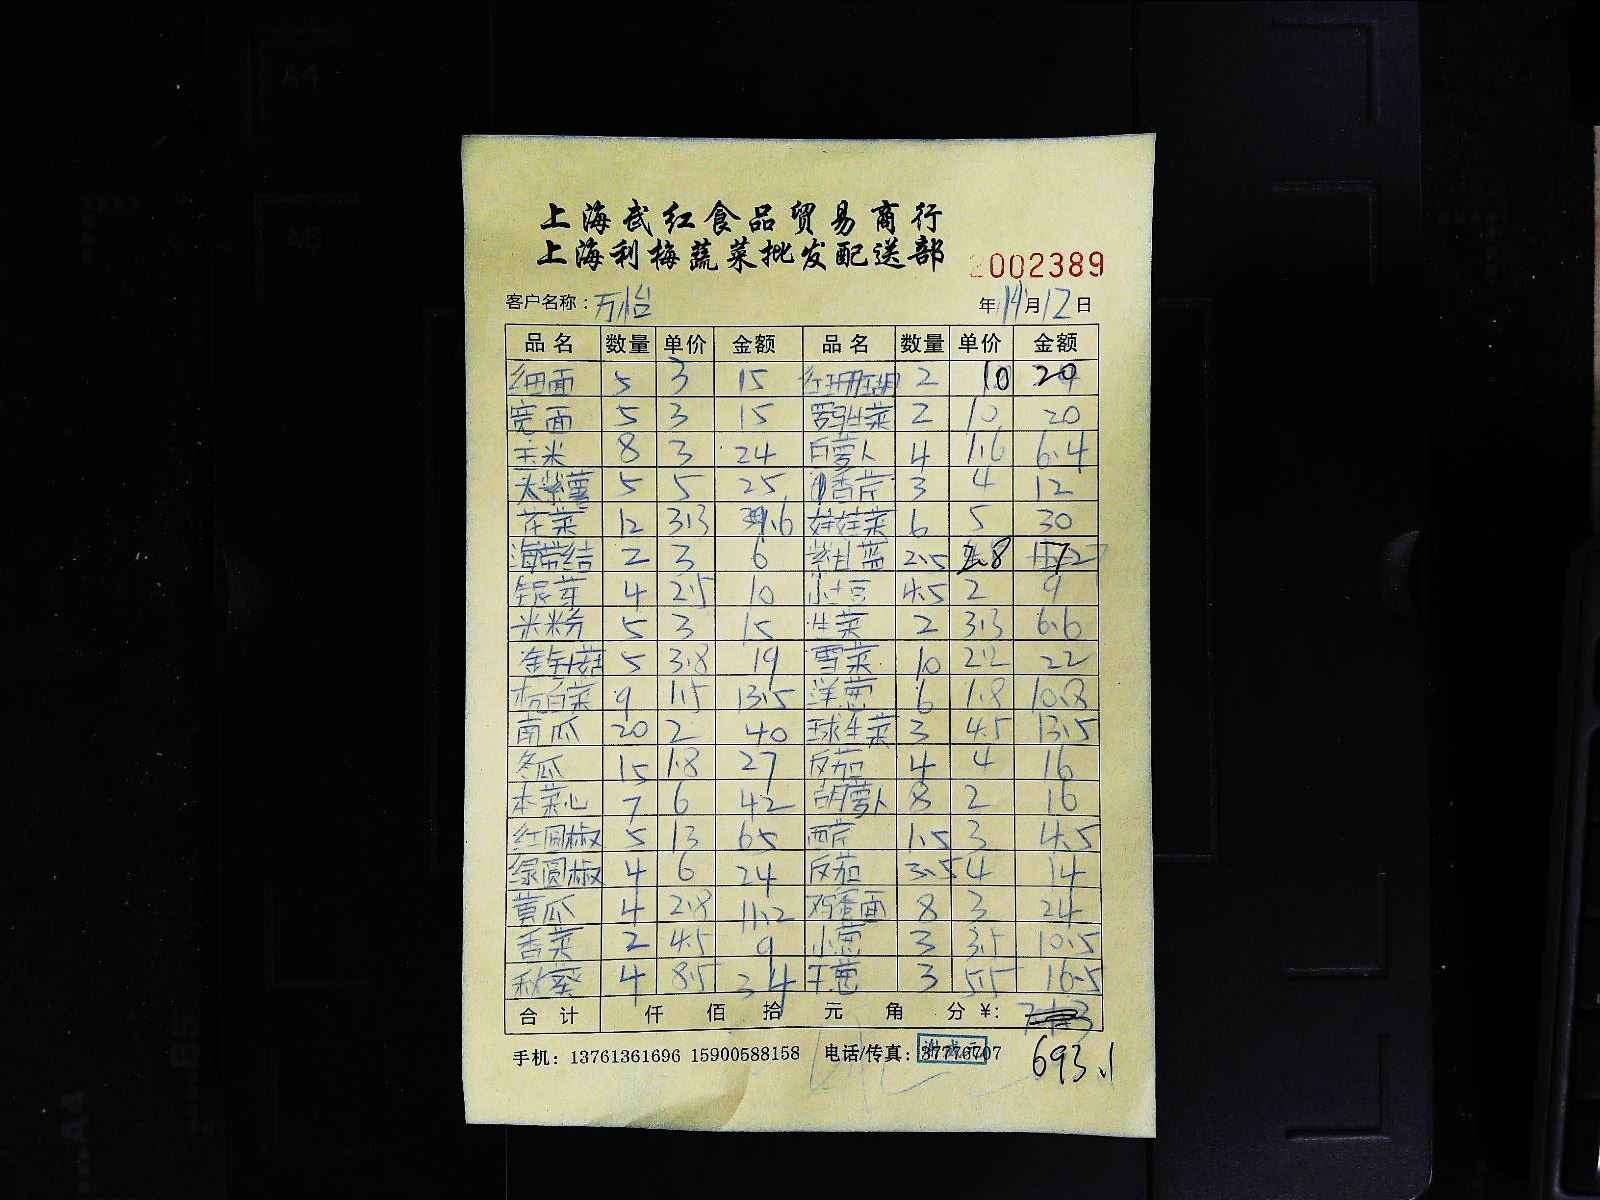 上海武红食品贸易商行
上海利梅蔬菜批发配送部
2002389
客户名称：万怡 年 月12日
品名 数量 单价 金额 品名 数量 单价 金额
细面 5 3 15 红珊瑚 2 10 20
宽面 5 3 15 罗马生菜 2 10 20
玉米 8 3 24 白萝卜 4 1.6 6.4
大紫薯 5 5 25 香芹 3 4 12
花菜 12 3.3 39.6 娃娃菜 6 5 30
海带结 2 3 6 紫甘蓝 2.5 2.8 7
银芽 4 2.5 10 小土豆 4.5 2 9
米粉 5 3 15 生菜 2 3.3 6.6
金针菇 5 3.8 19 雪菜 10 2.2 22
杭白菜 9 1.5 13.5 洋葱 6 1.8 10.8
南瓜 20 2 40 球生菜 3 4.5 13.5
冬瓜 15 1.8 27 反茄 4 4 16
本菜心 7 6 42 胡萝卜 8 2 16
红圆椒 5 13 65 西芹 1.5 3 4.5
绿圆椒 4 6 24 反茄 3.5 4 14
黄瓜 4 2.8 11.2 鸡蛋面 8 3 24
香菜 2 4.5 9 小葱 3 3.5 10.5
秋葵 4 8.5 34 干葱 3 5.5 16.5
合计 仟 佰 拾 元 角 分 ¥:
手机：13761361696 15900588158 电话/传真：37776707
693.1